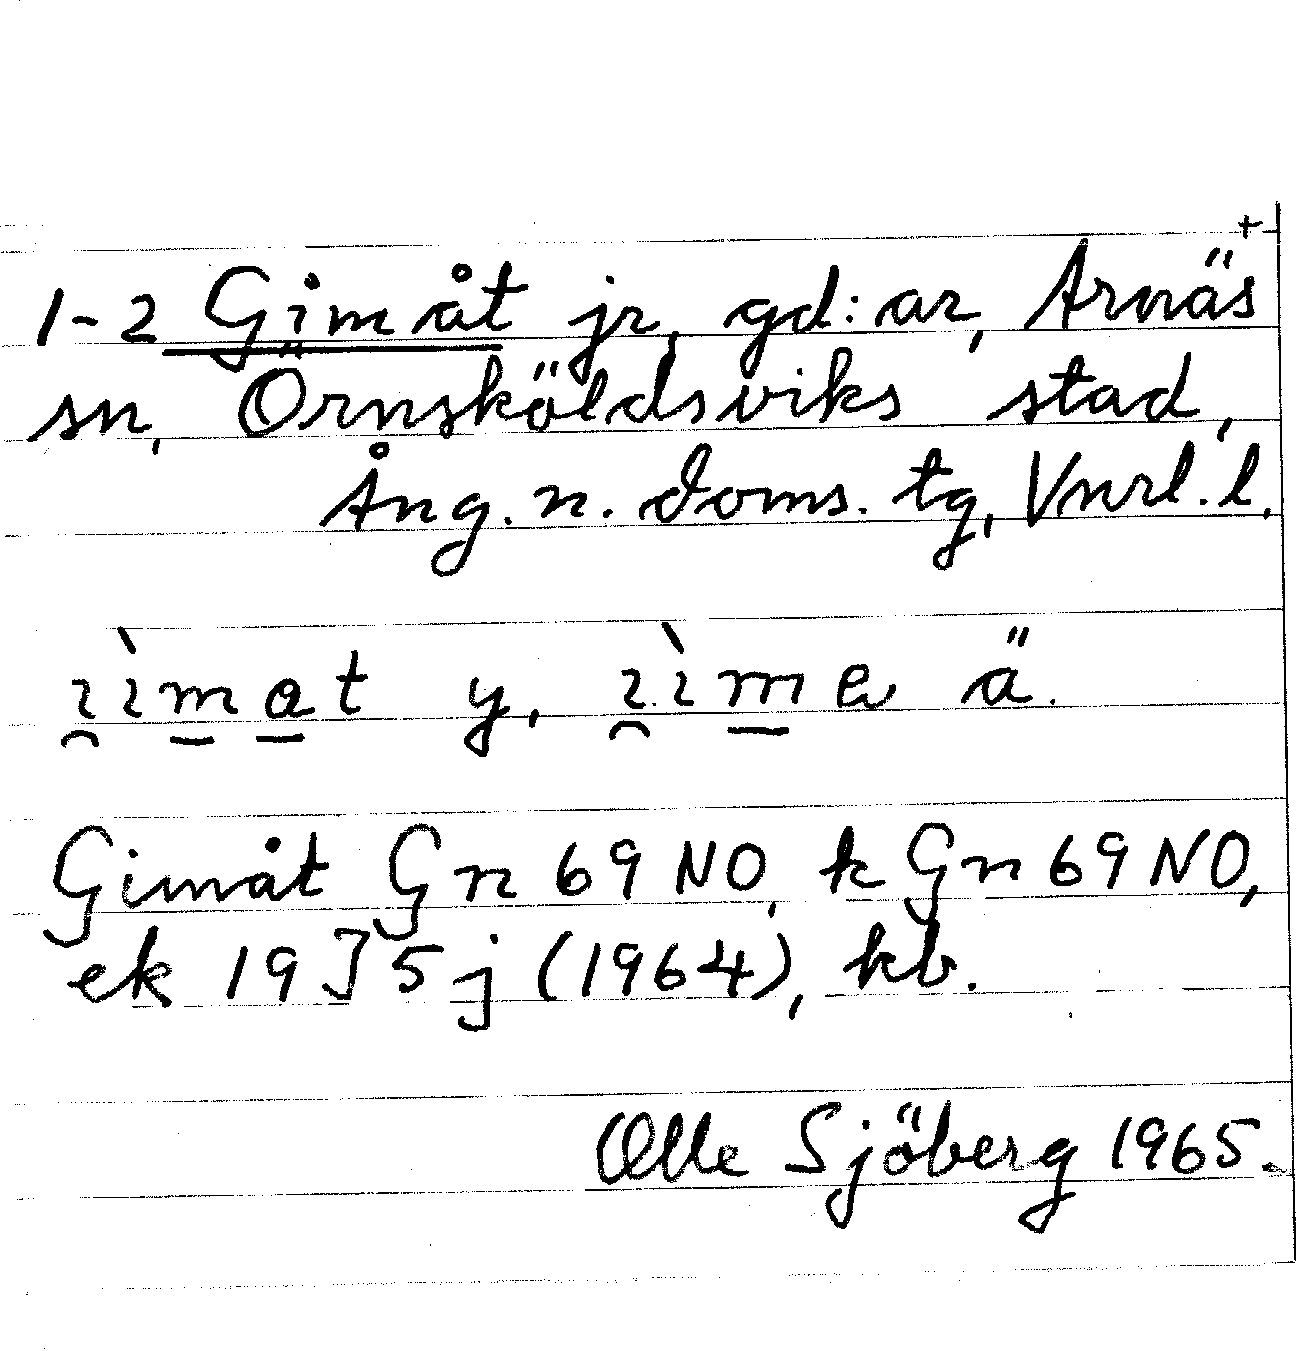 +
1-2 Gimåt jr, gd:ar, Arnäs
sn, Örnsköldsviks stad,
Ång. n. doms. tg, Vnrl. l.
ı̯ı̀m̱a̱t y, ı̯ı̀m̱a ä.
Gimåt Gn 69 NO, k Gn 69 NO,
ek 19J5j (1964), kb.
Olle Sjöberg 1965.